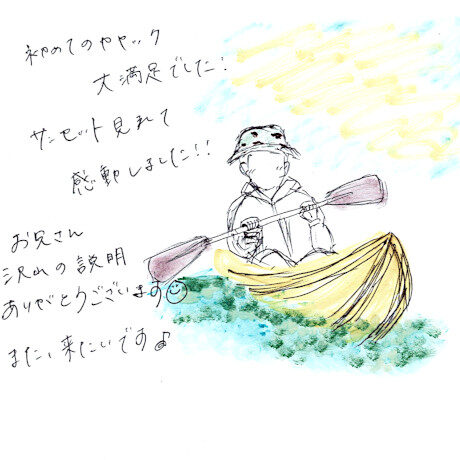 初めてのカヤック
大満足でした！
サンセット見れて
感動しました！！
お兄さん
沢山の説明
ありがとうございます
また、来たいです♪